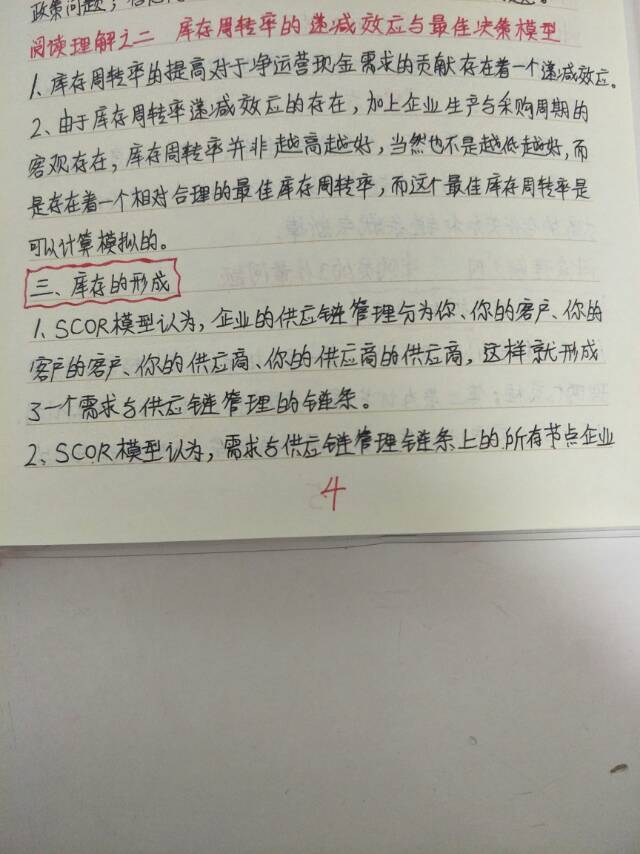 政策问题；
阅读理解之二 库存周转率的递减效应与最佳决策模型
1、库存周转率的提高对于净运营现金需求的贡献存在着一个递减效应。
2、由于库存周转率递减效应的存在，加上企业生产与采购周期的
客观存在，库存周转率并非越高越好，当然也不是越低越好，而
是存在着一个相对合理的最佳库存周转率，而这个最佳库存周转率是
可以计算模拟的。
三、库存的形成
1、SCOR模型认为，企业的供应链管理分为你、你的客户、你的
客户的客户、你的供应商、你的供应商的供应商，这样就形成
了一个需求与供应链管理的链条。
2、SCOR模型认为，需求与供应链管理链条上的所有节点企业
4